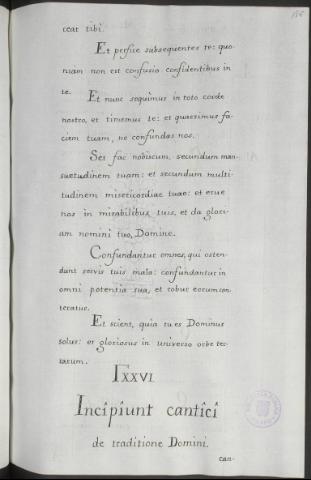 ceat tibi.
Et perfice subsequentes te: quo-
niam non est confusio confidentibus in
te.
Et nunc sequimus in toto corde
nostro, et timemus te: et quaerimus fa-
ciem tuam, ne confundas nos.
Sed fac nobiscum, secundum man-
suetudinem tuam: et secundum multi-
tudinem misericordiae tuae: et erue
nos in mirabilibus tuis, et da glori-
am nomini tuo, Domine.
Confundantur omnes, qui osten-
dunt servis tuis mala: confundantur in
omni potentia sua, et robur eorum con-
teratur.
Et scient, quia tu es Dominus
solus: et gloriosus in universo orbe ter-
rarum.
LXXVI
Incipiunt cantici
de traditione Domini.
can-